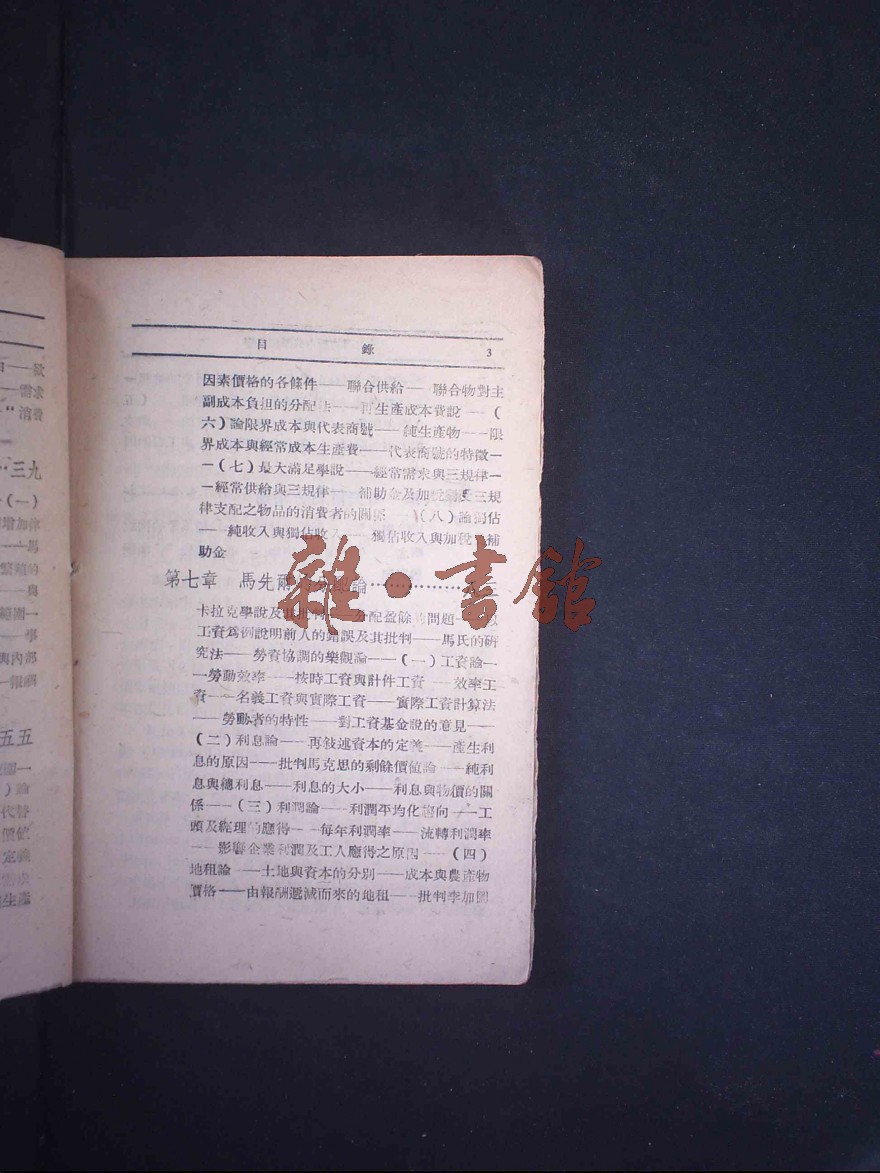 目錄 3
因素價格的各條件——聯合供給——聯合物對主
副成本負担的分配法——再生產成本費說——(
六)論限界成本與代表商號——純生產物——限
界成本與經常成本生產費——代表商號的特徵—
—(七)最大滿足學說——經常需求與三規律—
—經常供給與三規律——補助金及加稅 三規
律支配之物品的消費者的關係——(八)論獨佔
——純收入與獨佔收入——獨佔收入與加稅 補
助金
第七章 馬先爾 分配論………………
卡拉克學說及其批判——分配盈餘的問題——以
工資爲例說明前人的錯誤及其批判——馬氏的研
究法——勞資協調的樂觀論——(一)工資論—
—勞動效率——按時工資與計件工資——效率工
資——名義工資與實際工資——實際工資計算法
——勞動者的特性——對工資基金說的意見——
(二)利息論——再敍述資本的定義——產生利
息的原因——批判馬克思的剩餘價値論——純利
息與總利息——利息的大小——利息與物價的關
係——(三)利潤論——利潤平均化趨向——工
頭及經理的應得——每年利潤率——流轉利潤率
——影響企業利潤及工人應得之原因——(四)
地租論——土地與資本的分別——成本與農產物
價格——由報酬遞減而來的地租——批判李加圖
需求
消費
三九
(一)
增加律
——馬
繁殖的
——與
範圍—
——事
與內部
——報酬
五五
)論
代替
價值
定義
生產
雜·書館